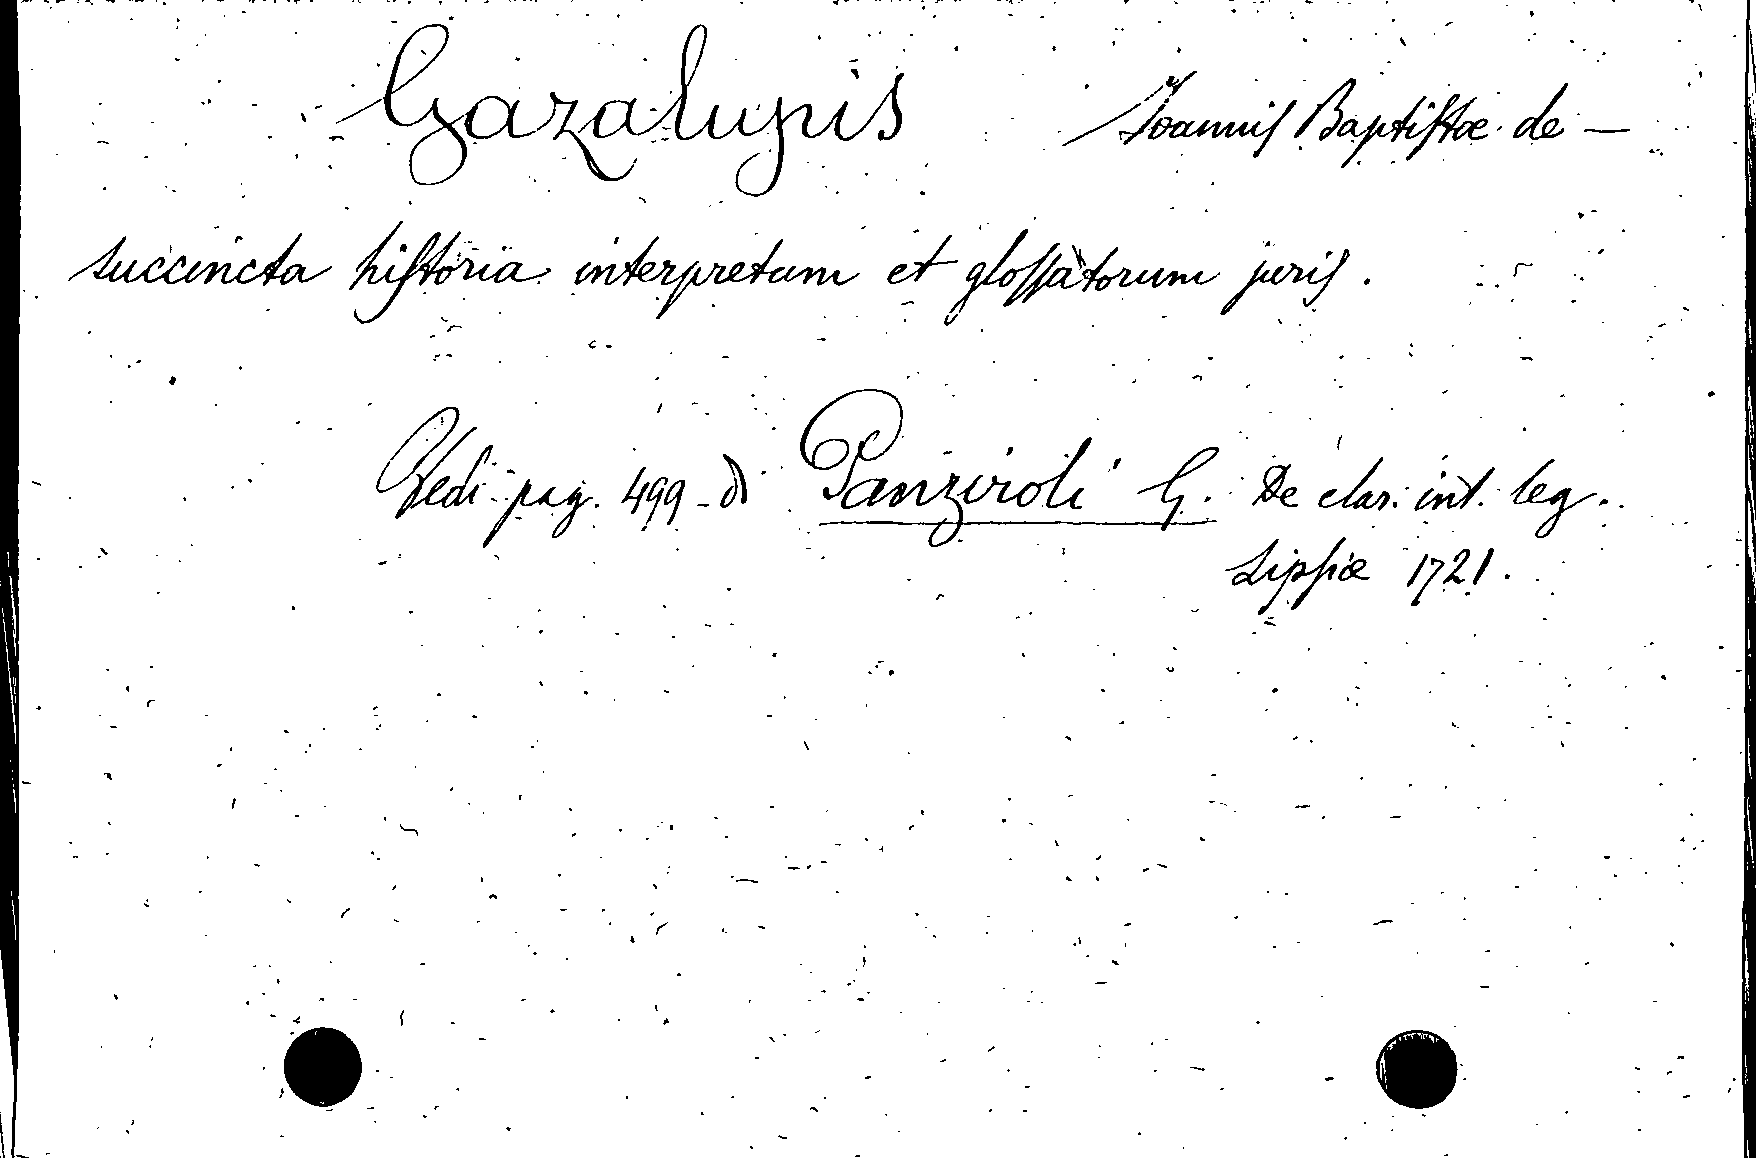 Gazalupis Joannis Baptistæ de —
succincta historia interpretum et glossatorum juris.
Vedi pag. 499 di Panziroli G. De clar. int. leg.
Lipsiæ 1721.